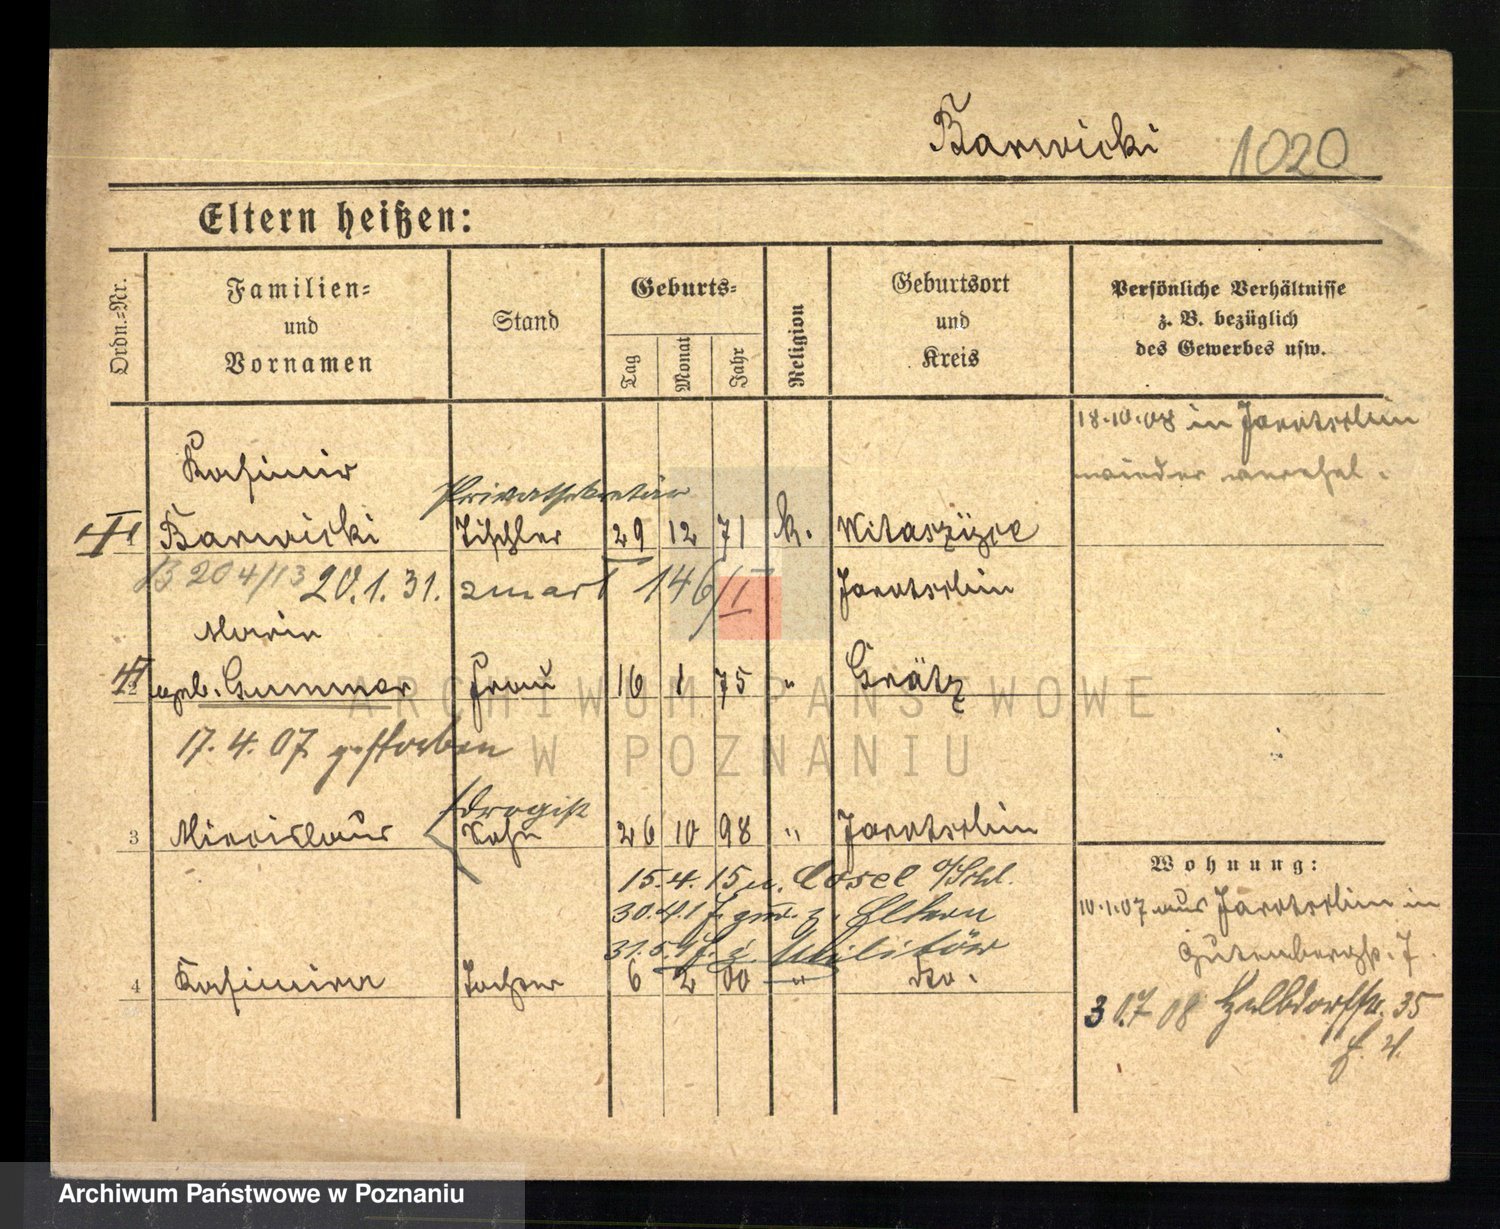 Barwicki 1020
Eltern heißen:
Ordn.=Nr.
Familien=
und
Vornamen
Stand
Geburts=
Tag
Monat
Jahr
Religion
Geburtsort
und
Kreis
Persönliche Verhältnisse
z. B. bezüglich
des Gewerbes usw.
18.10.08 in Jarotschin
wieder verehel.
Kasimir
Privatsekretär
1 Barwicki Tischler 29 12 71 k. Witaszüce
B 204/13 20.1.31. zmarł 146/I Jarotschin
Maria
2 geb. Gummer Frau 16 1 75 " Grätz
17.4.07 gestorben
Drogist
3 Miecislaus Sohn 26 10 98 " Jarotschin
15.4.15 n. Cosel O/Schl.
30.4.17 zur. z. Eltern
31.5.17 z. Militär
4 Kasimira Tochter 6 2 00 " do.
Wohnung:
10.1.07 aus Jarotschin in
Gutenbergstr. 7.
30.7 08 Helbdorfstr. 35
H. 4.
ARCHIWUM PAŃSTWOWE
W POZNANIU
Archiwum Państwowe w Poznaniu